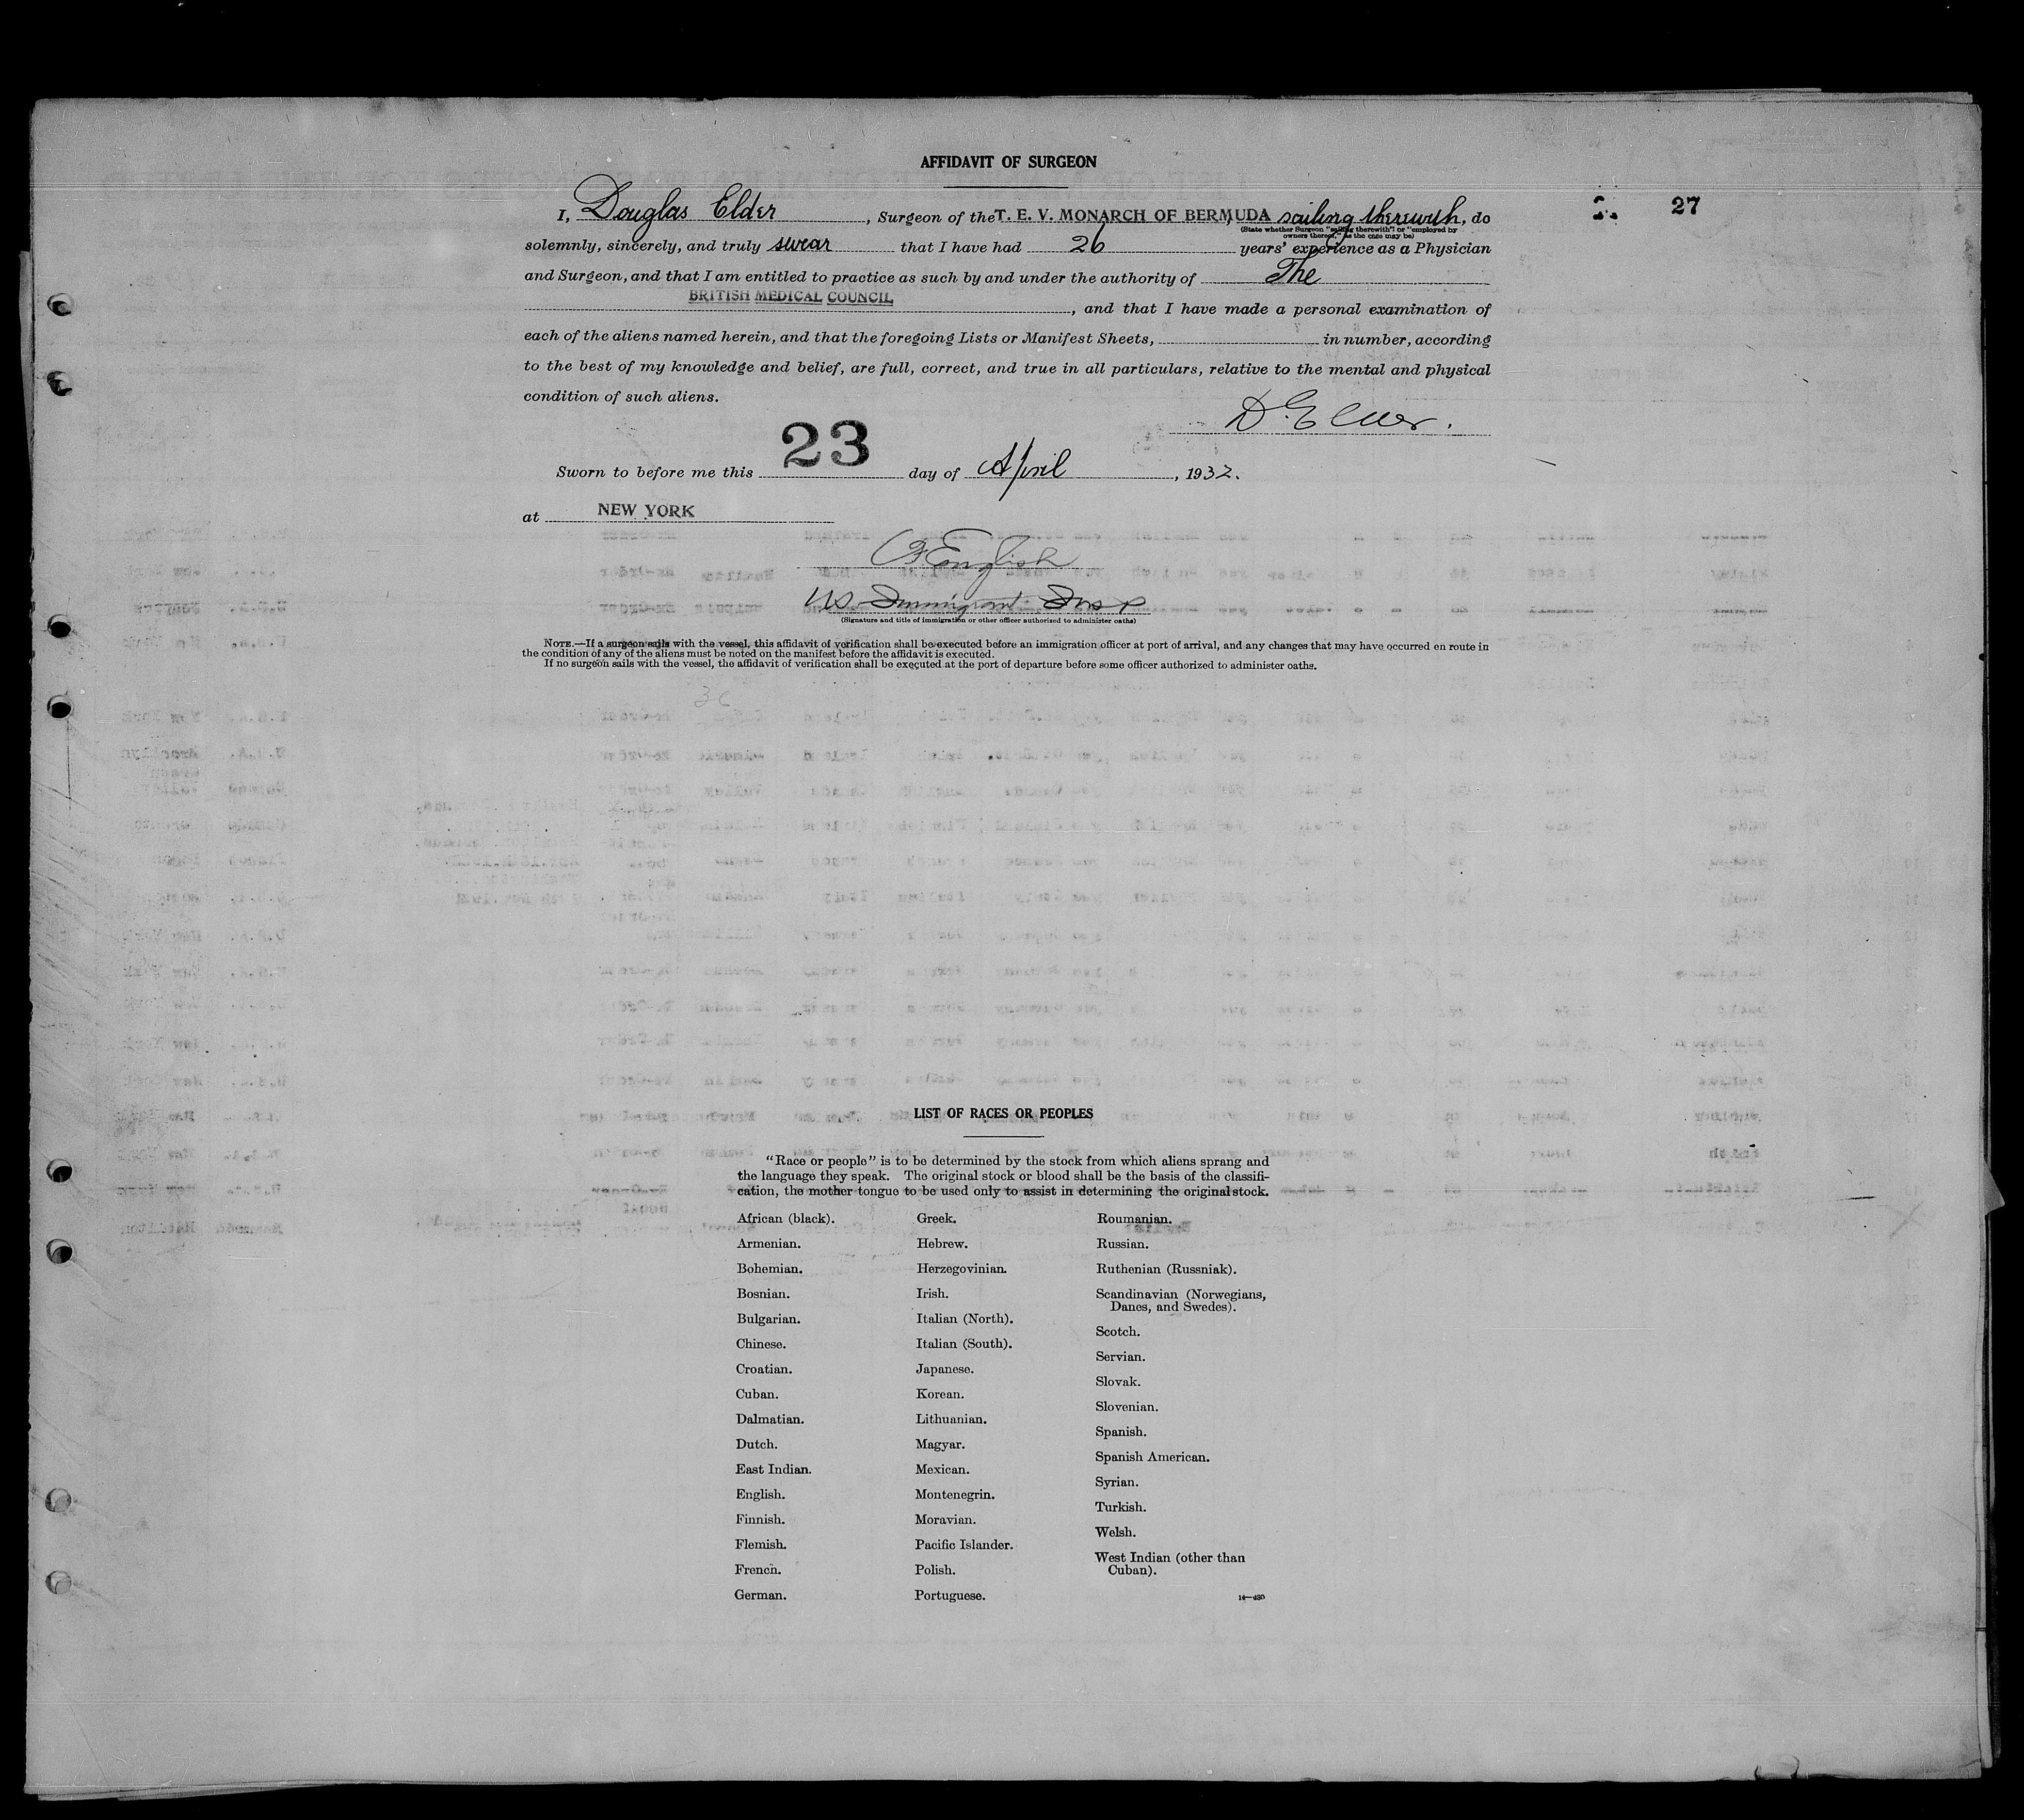 AFFIDAVIT OF SURGEON
27
I, Douglas Elder, Surgeon of the T. E. V. MONARCH OF BERMUDA, sailing therewith, do
(State whether Surgeon "sailing therewith" or "employed by
owners thereof," as the case may be)
solemnly, sincerely, and truly swear that I have had 26 years' experience as a Physician
and Surgeon, and that I am entitled to practice as such by and under the authority of The
BRITISH MEDICAL COUNCIL, and that I have made a personal examination of
each of the aliens named herein, and that the foregoing Lists or Manifest Sheets, in number, according
to the best of my knowledge and belief, are full, correct, and true in all particulars, relative to the mental and physical
condition of such aliens.
D. Elder.
Sworn to before me this 23 day of April, 1932.
at NEW YORK
English
US Immigrant Insp
(Signature and title of immigration or other officer authorized to administer oaths)
NOTE.—If a surgeon sails with the vessel, this affidavit of verification shall be executed before an immigration officer at port of arrival, and any changes that may have occurred en route in
the condition of any of the aliens must be noted on the manifest before the affidavit is executed.
If no surgeon sails with the vessel, the affidavit of verification shall be executed at the port of departure before some officer authorized to administer oaths.
LIST OF RACES OR PEOPLES
"Race or people" is to be determined by the stock from which aliens sprang and
the language they speak. The original stock or blood shall be the basis of the classifi-
cation, the mother tongue to be used only to assist in determining the original stock.
African (black).
Armenian.
Bohemian.
Bosnian.
Bulgarian.
Chinese.
Croatian.
Cuban.
Dalmatian.
Dutch.
East Indian.
English.
Finnish.
Flemish.
French.
German.
Greek.
Hebrew.
Herzegovinian.
Irish.
Italian (North).
Italian (South).
Japanese.
Korean.
Lithuanian.
Magyar.
Mexican.
Montenegrin.
Moravian.
Pacific Islander.
Polish.
Portuguese.
Roumanian.
Russian.
Ruthenian (Russniak).
Scandinavian (Norwegians,
Danes, and Swedes).
Scotch.
Servian.
Slovak.
Slovenian.
Spanish.
Spanish American.
Syrian.
Turkish.
Welsh.
West Indian (other than
Cuban).
14—430